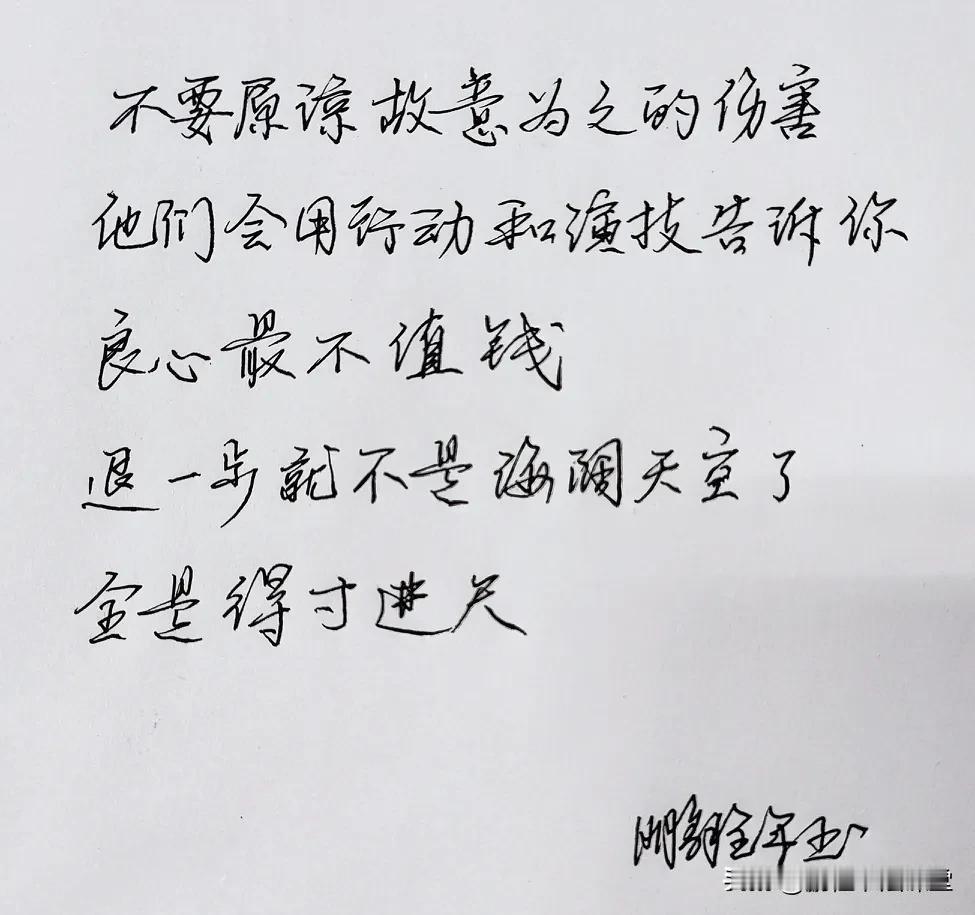 不要原谅故意为之的伤害
他们会用行动和演技告诉你
良心最不值钱
退一步就不是海阔天空了
全是得寸进尺